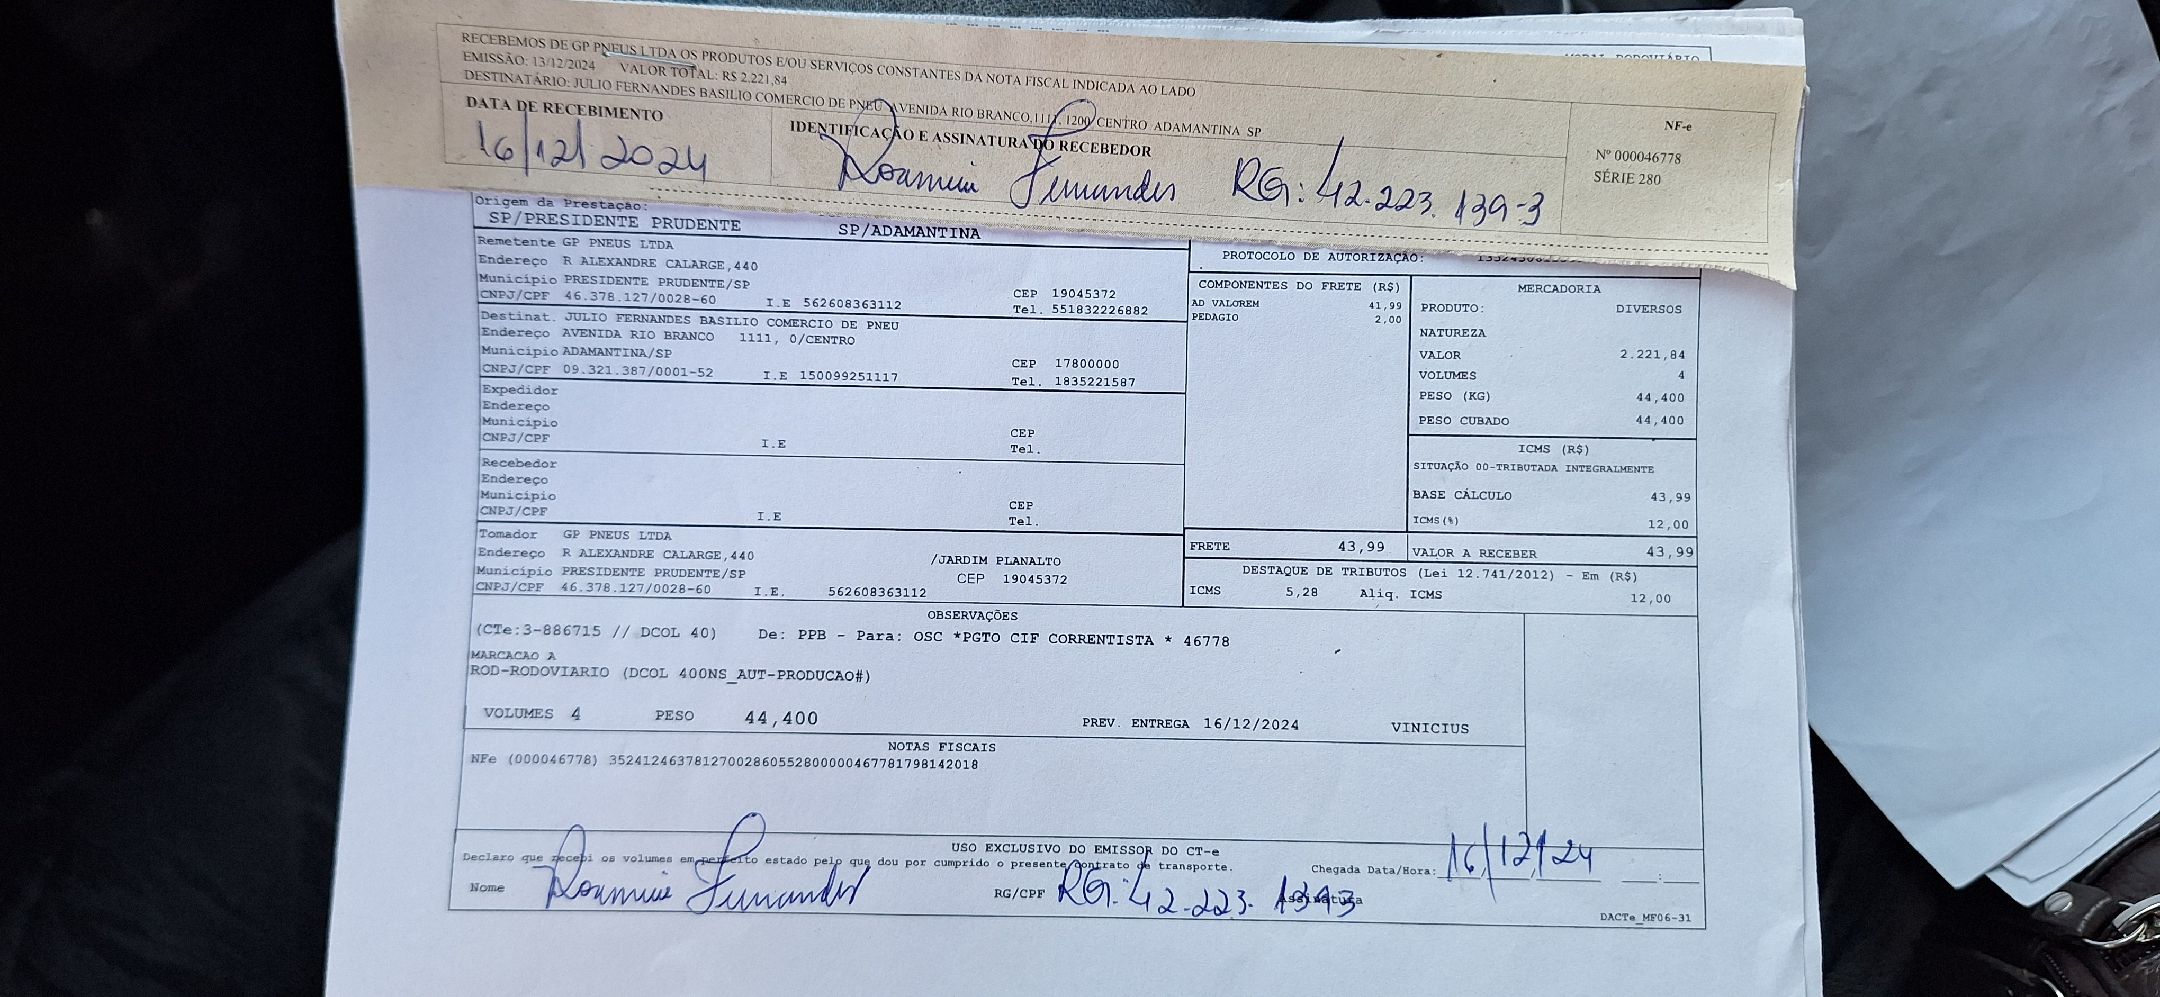 RECEBEMOS DE GP PNEUS LTDA OS PRODUTOS E/OU SERVIÇOS CONSTANTES DA NOTA FISCAL INDICADA AO LADO
EMISSÃO: 13/12/2024 VALOR TOTAL: R$ 2.221,84
DESTINATÁRIO: JULIO FERNANDES BASILIO COMERCIO DE PNEU AVENIDA RIO BRANCO,1111, 1200 CENTRO ADAMANTINA SP
DATA DE RECEBIMENTO
16/12/2024
IDENTIFICAÇÃO E ASSINATURA DO RECEBEDOR
Fernandes RG: 42.223.139-3
NF-e
Nº 000046778
SÉRIE 280
Origem da Prestação:
SP/PRESIDENTE PRUDENTE SP/ADAMANTINA
Remetente GP PNEUS LTDA
Endereço R ALEXANDRE CALARGE,440
Município PRESIDENTE PRUDENTE/SP CEP 19045372
CNPJ/CPF 46.378.127/0028-60 I.E 562608363112 Tel. 551832226882
Destinat. JULIO FERNANDES BASILIO COMERCIO DE PNEU
Endereço AVENIDA RIO BRANCO 1111, 0/CENTRO
Município ADAMANTINA/SP CEP 17800000
CNPJ/CPF 09.321.387/0001-52 I.E 150099251117 Tel. 1835221587
Expedidor
Endereço
Município CEP
CNPJ/CPF I.E Tel.
Recebedor
Endereço
Município CEP
CNPJ/CPF I.E Tel.
Tomador GP PNEUS LTDA
Endereço R ALEXANDRE CALARGE,440 /JARDIM PLANALTO
Município PRESIDENTE PRUDENTE/SP CEP 19045372
CNPJ/CPF 46.378.127/0028-60 I.E. 562608363112
PROTOCOLO DE AUTORIZAÇÃO:
COMPONENTES DO FRETE (R$)
AD VALOREM 41,99
PEDAGIO 2,00
MERCADORIA
PRODUTO: DIVERSOS
NATUREZA
VALOR 2.221,84
VOLUMES 4
PESO (KG) 44,400
PESO CUBADO 44,400
ICMS (R$)
SITUAÇÃO 00-TRIBUTADA INTEGRALMENTE
BASE CÁLCULO 43,99
ICMS(%) 12,00
FRETE 43,99 VALOR A RECEBER 43,99
DESTAQUE DE TRIBUTOS (Lei 12.741/2012) - Em (R$)
ICMS 5,28 Aliq. ICMS 12,00
OBSERVAÇÕES
(CTe:3-886715 // DCOL 40) De: PPB - Para: OSC *PGTO CIF CORRENTISTA * 46778
MARCACAO A
ROD-RODOVIARIO (DCOL 400NS_AUT-PRODUCAO#)
VOLUMES 4 PESO 44,400 PREV. ENTREGA 16/12/2024 VINICIUS
NOTAS FISCAIS
NFe (000046778) 35241246378127002860552800000467781798142018
USO EXCLUSIVO DO EMISSOR DO CT-e
Declaro que recebi os volumes em perfeito estado pelo que dou por cumprido o presente contrato de transporte. Chegada Data/Hora: 16/12/24 __:__
Nome Fernandes RG/CPF RG: 42.223.1393 Assinatura
DACTe_MF06-31